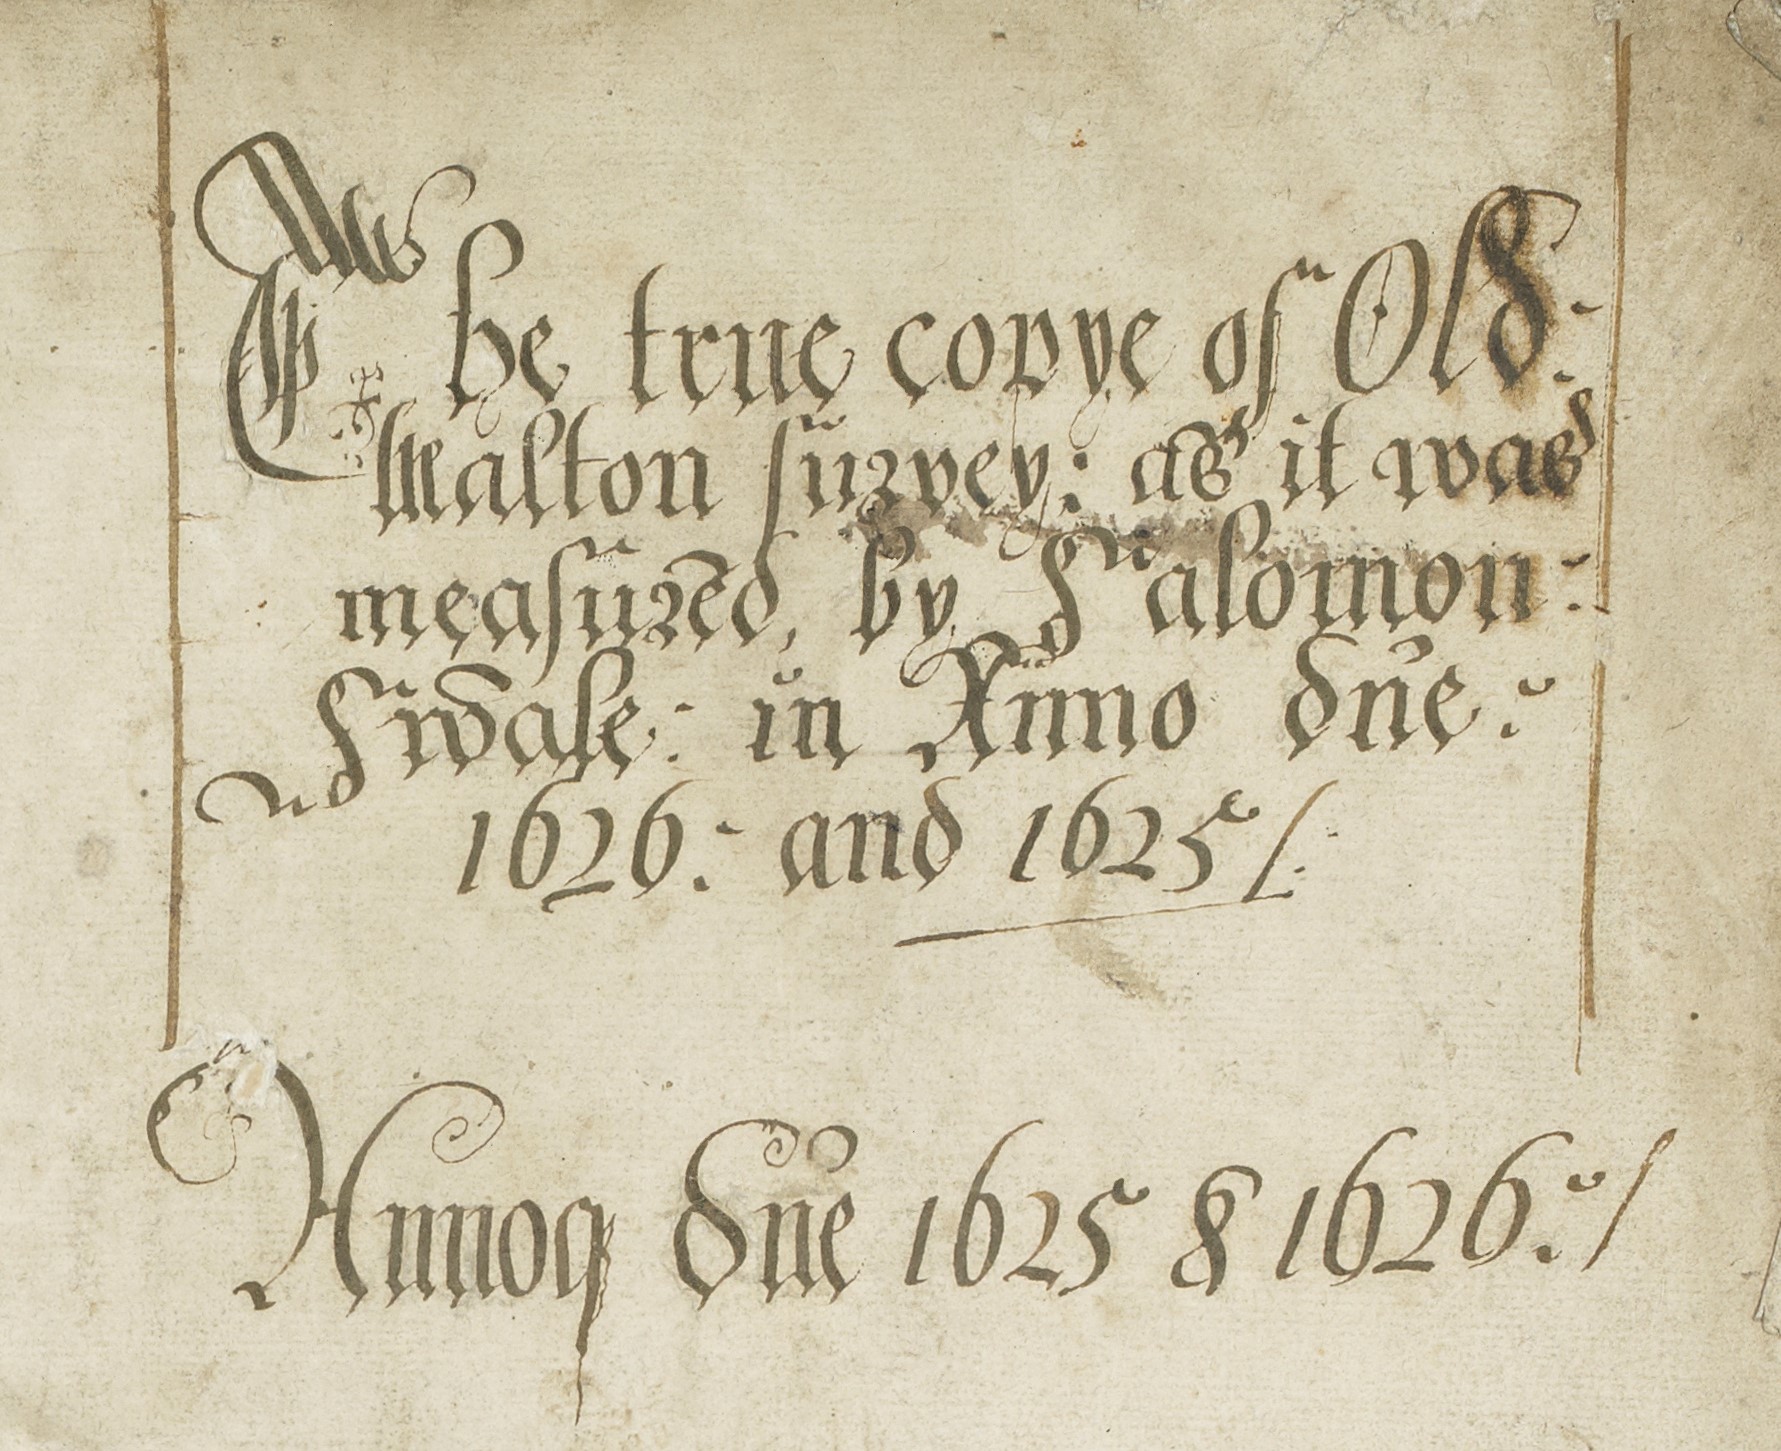 The true copye of Old:
Malton survey: as it was
measured, by Salomon:
Swale: in Anno dñe:
1626: and 1625/:
Annoq dñe 1625 & 1626:/